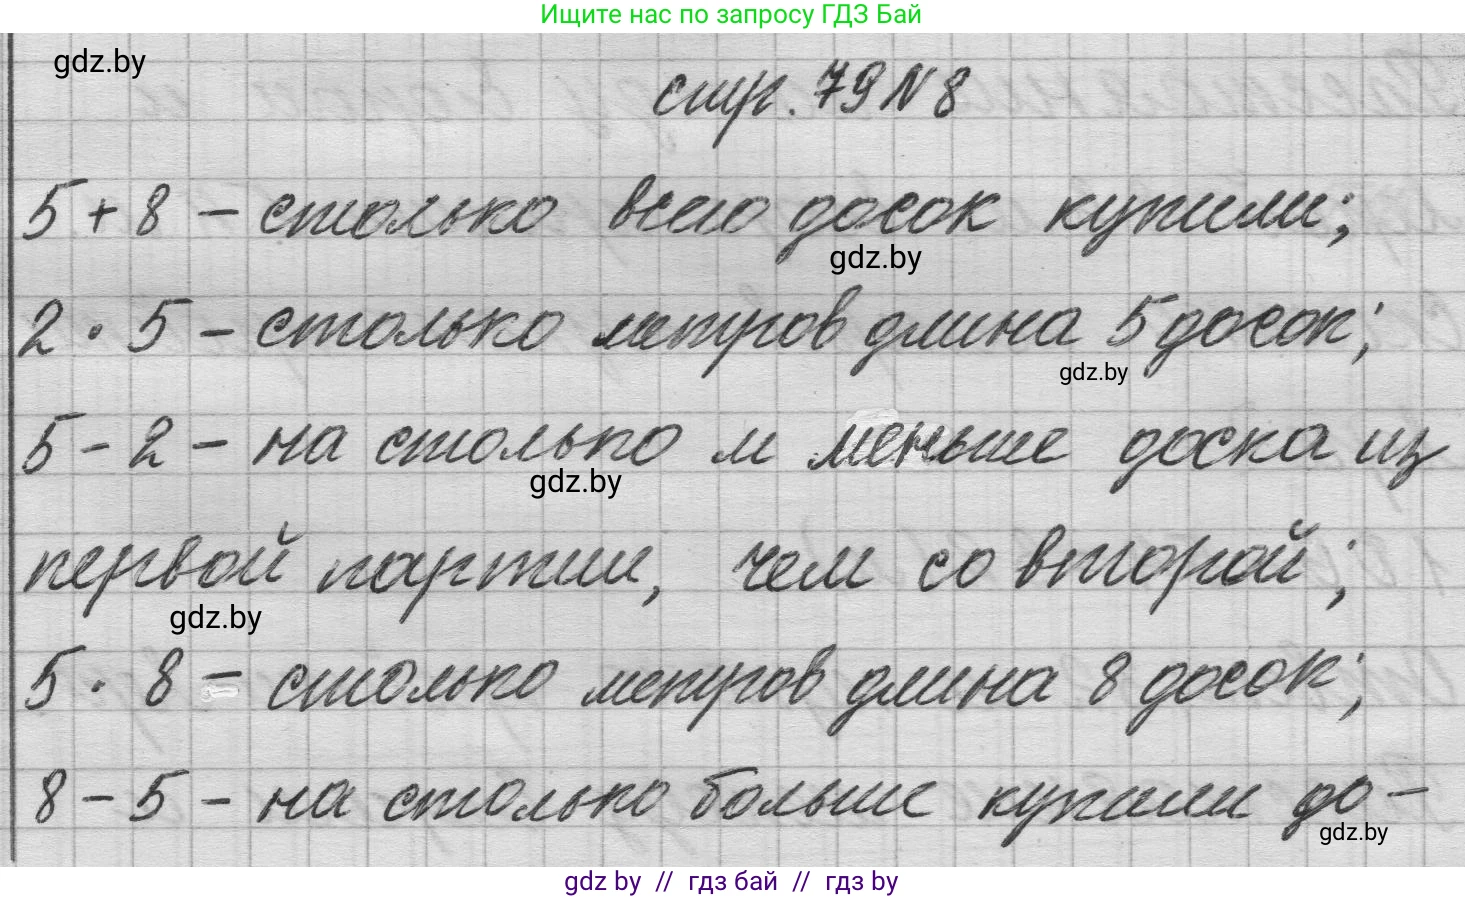 Ищите нас по запросу ГДЗ Бай
gdz.by
стр. 79 N 8
5 + 8 – столько всего досок купили;
gdz.by
2 · 5 – столько метров длина 5 досок;
gdz.by
5 – 2 – на столько м меньше доска из
gdz.by
первой партии, чем со второй;
gdz.by
5 · 8 – столько метров длина 8 досок;
8 – 5 – на столько больше купили до-
gdz.by
gdz by // гдз бай // гдз by